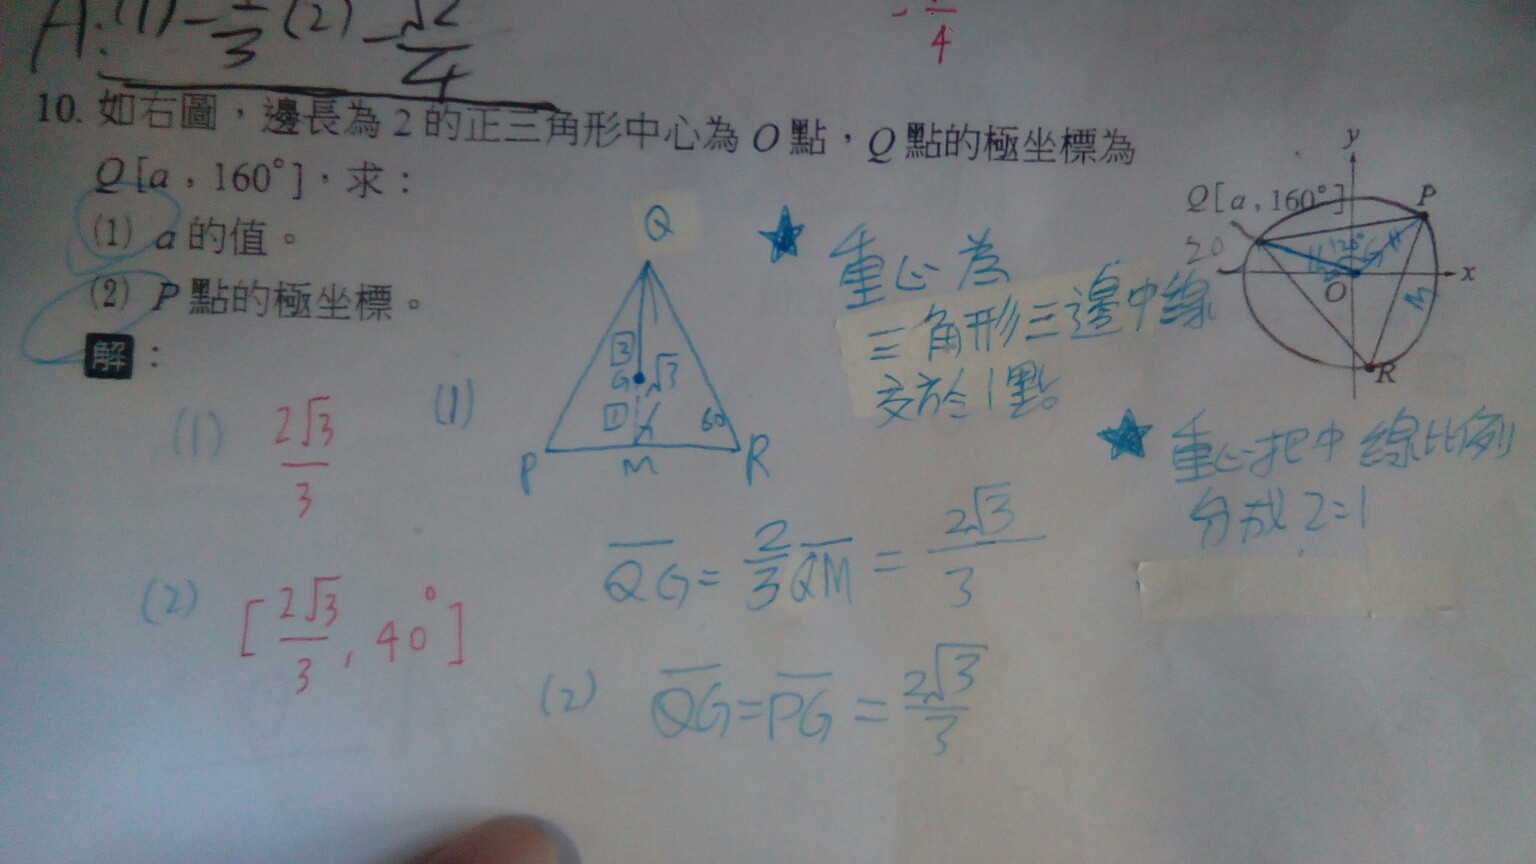 A: (1) -1/3 (2) -√2/4
4
10. 如右圖，邊長為 2 的正三角形中心為 O 點，Q 點的極坐標為
Q[a，160°]，求：
(1) a 的值。
(2) P 點的極坐標。
解：
y
Q[a，160°]
P
20
120°
O
x
M
R
(1) 2√3/3
(1)
Q
2
G
√3
1
60
P
M
R
★ 重心為
三角形三邊中線
交於1點。
★ 重心把中線比例
分成 2=1
QG = 2/3 QM = 2√3/3
(2) [2√3/3, 40°]
(2) QG = PG = 2√3/3